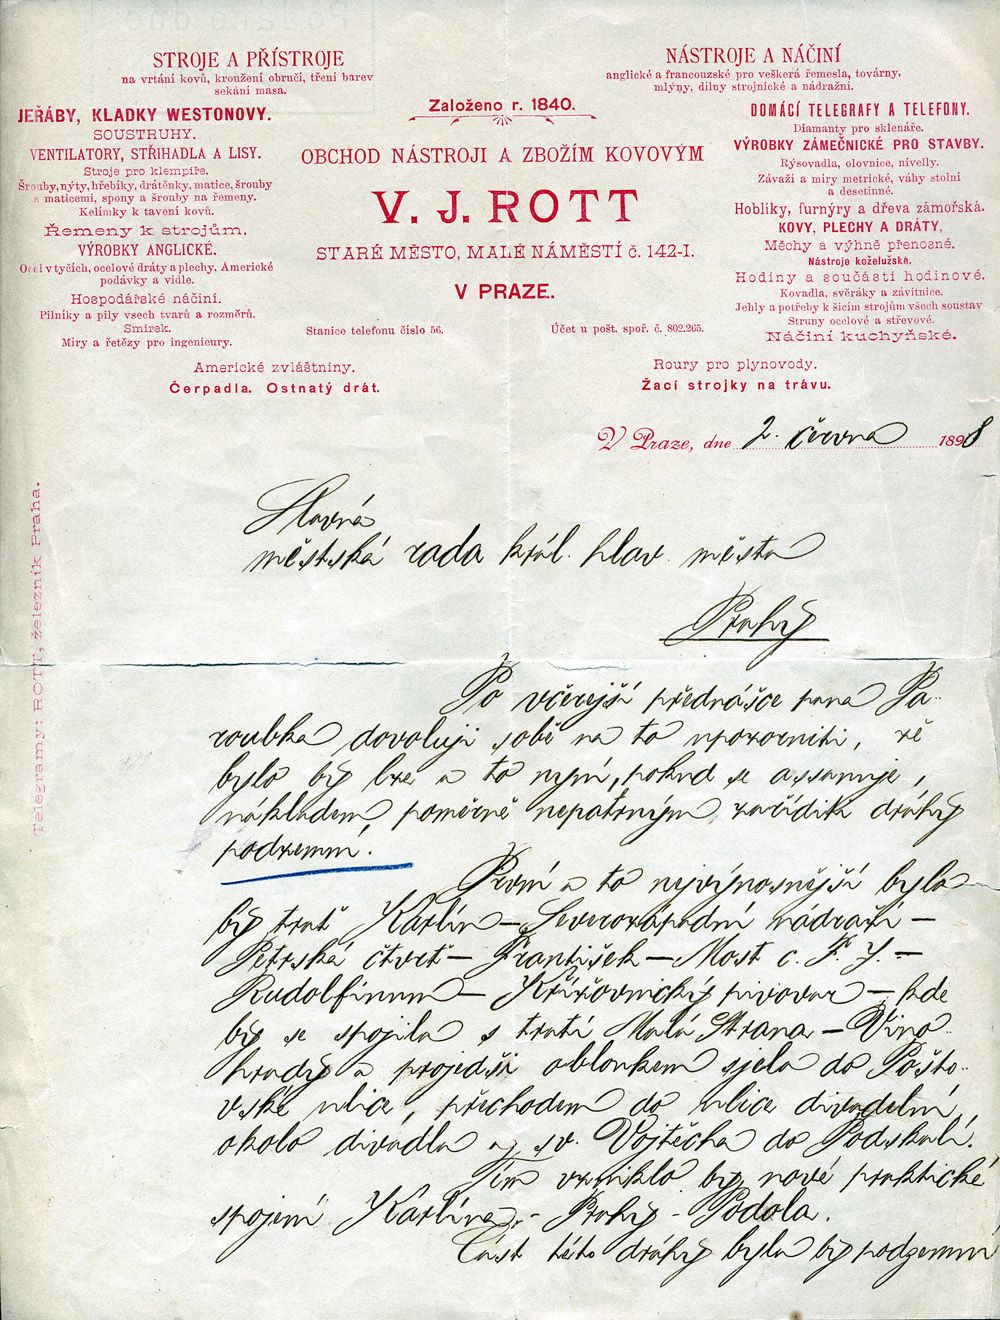 STROJE A PŘÍSTROJE
na vrtání kovů, kroužení obručí, tření barev
sekání masa.
JEŘÁBY, KLADKY WESTONOVY.
SOUSTRUHY.
VENTILATORY, STŘIHADLA A LISY.
Stroje pro klempíře.
Šrouby, nýty, hřebíky, drátěnky, matice, šrouby
s maticemi, spony a šrouby na řemeny.
Kelímky k tavení kovů.
Řemeny k strojům.
VÝROBKY ANGLICKÉ.
Ocel v tyčích, ocelové dráty a plechy. Americké
podávky a vidle.
Hospodářské náčiní.
Pilníky a pily všech tvarů a rozměrů.
Smirek.
Míry a řetězy pro ingenieury.
Americké zvláštniny.
Čerpadla. Ostnatý drát.
Založeno r. 1840.
OBCHOD NÁSTROJI A ZBOŽÍM KOVOVÝM
V. J. ROTT
STARÉ MĚSTO, MALÉ NÁMĚSTÍ č. 142-I.
V PRAZE.
Stanice telefonu číslo 56.
Účet u pošt. spoř. č. 802.265.
NÁSTROJE A NÁČINÍ
anglické a francouzské pro veškerá řemesla, továrny,
mlýny, dílny strojnické a nádražní.
DOMÁCÍ TELEGRAFY A TELEFONY.
Diamanty pro sklenáře.
VÝROBKY ZÁMEČNICKÉ PRO STAVBY.
Rýsovadla, olovnice, nivelly.
Závaží a míry metrické, váhy stolní
a desetinné.
Hoblíky, furnýry a dřeva zámořská.
KOVY, PLECHY A DRÁTY,
Měchy a výhně přenosné.
Nástroje koželužské.
Hodiny a součásti hodinové.
Kovadla, svěráky a závitnice.
Jehly a potřeby k šicím strojům všech soustav
Struny ocelové a střevové.
Náčiní kuchyňské.
Roury pro plynovody.
Žací strojky na trávu.
V Praze, dne 2. června 1898
Telegramy: ROTT, železník Praha.
Slavná
městská rada král. hlav. města
Prahy
Po včerejší přednášce pana Pa-
roubka dovoluji sobě na to upozorniti, že
bylo by lze a to nyní, pokud se assanuje,
nákladem poměrně nepatrným zaříditi dráhy
podzemní.
První a to nejvýnosnější byla
by trať Karlín – Severozápadní nádraží –
Petrská čtvrť – František – Most c. F. J. –
Rudolfinum – Křižovnický pivovar – kde
by se spojila s tratí Malá Strana – Vino-
hrady a projedši obloukem sjela do Pošto-
vské ulice, přechodem do ulice divadelní,
okolo divadla a sv. Vojtěcha do Podskalí.
Tím vzniklo by nové praktické
spojení Karlína - Prahy - Podola.
Část této dráhy byla by podzemní